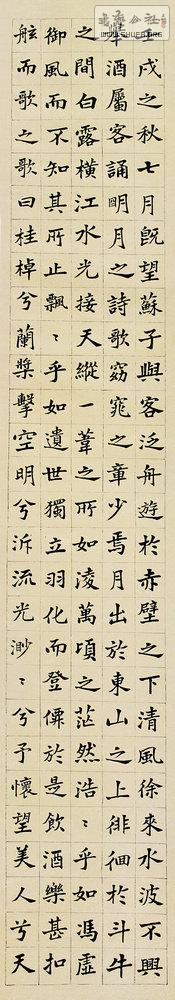 壬戌之秋七月旣望蘇子與客泛舟遊於赤壁之下清風徐來水波不興
舉酒屬客誦明月之詩歌窈窕之章少焉月出於東山之上徘徊於斗牛
之間白露橫江水光接天縱一葦之所如淩萬頃之茫然浩〻乎如馮虛
御風而不知其所止飄〻乎如遺世獨立羽化而登僊於是飲酒樂甚扣
舷而歌之歌曰桂棹兮蘭槳擊空明兮泝流光渺〻兮予懷望美人兮天